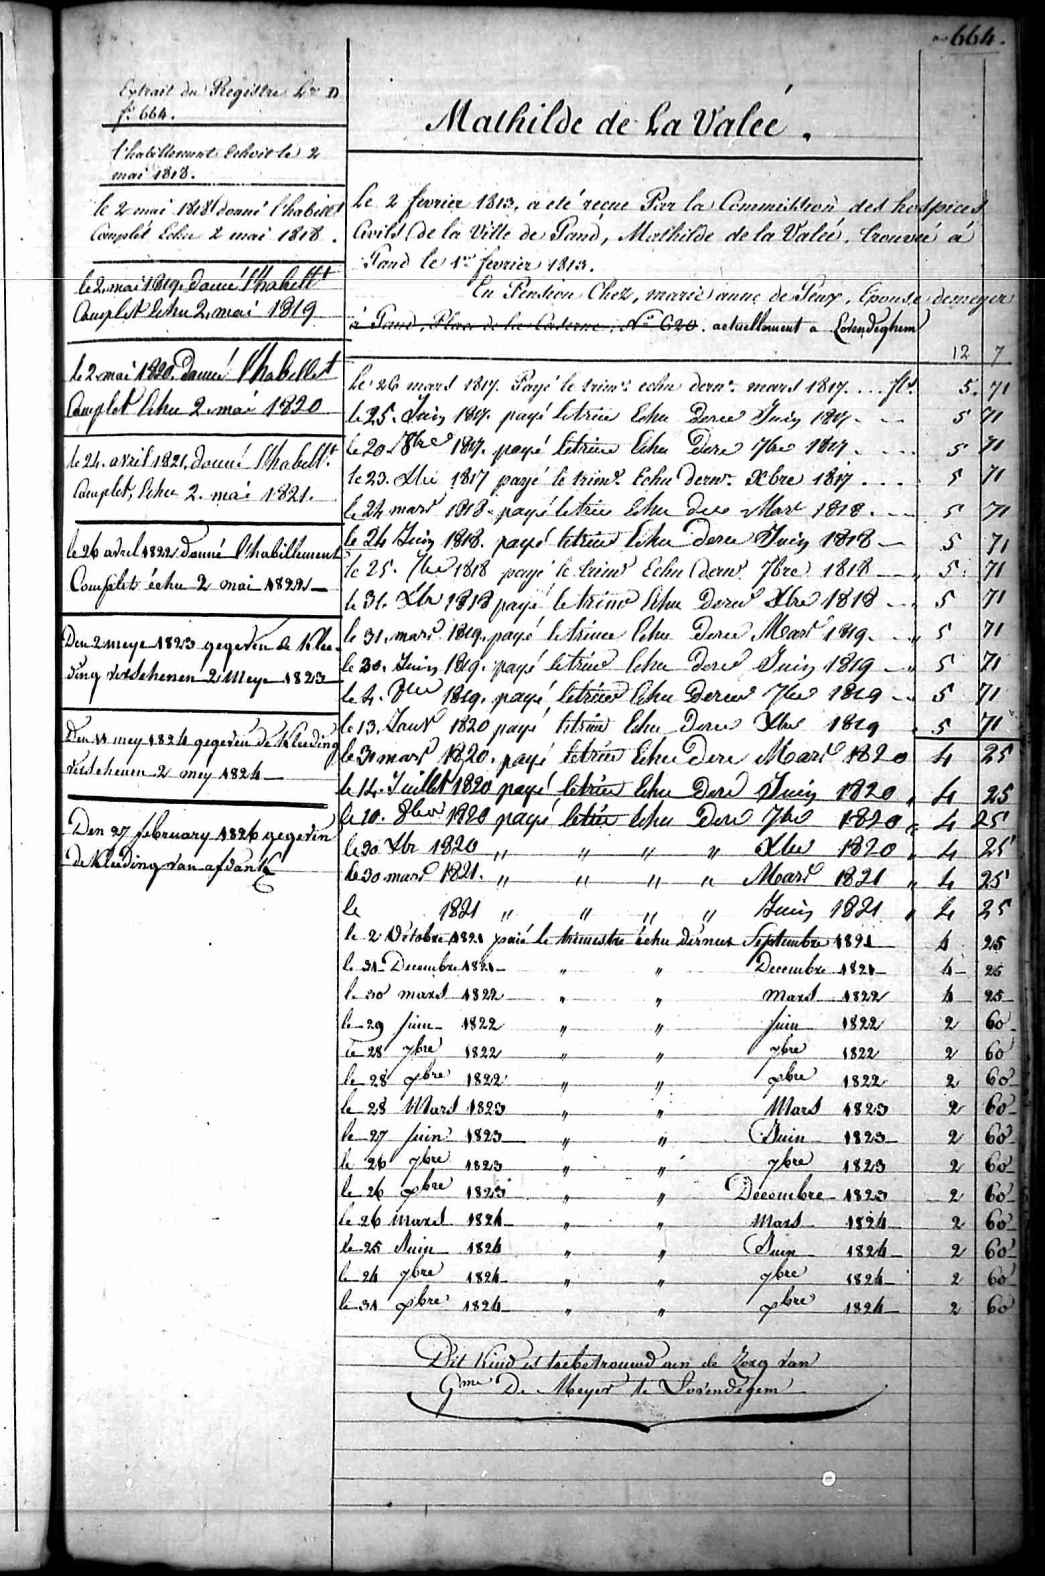 664.
Extrait du Registre Lre D
fo 664.
l'habillement Echoit le 2
mai 1818.
le 2 mai 1818 donné l'habillt
Complet Echu 2 mai 1818.
le 2 mai 1819. donné l'habillt
Complet Echu 2. mai 1819
le 2 mai 1820. donné l'habillet
Complet Echu 2. mai 1820
le 24. avril 1821. donné l'habillt
Complet, Echu 2. mai 1821.
le 26 avril 1822 donné l'habillement
Complet échu 2 mai 1822
Den 2 meye 1823 gegeven de Klee-
ding verschenen 2 Meye 1823
Den 11 mey 1824 gegeven de Kleeding
verschenen 2 mey 1824
Den 27 february 1826 gegeven
de Kleeding van afdank
Mathilde de La Valeé.
Le 2 fevrier 1813, a été recue Par la Commission des hospices
Civils de la Ville de Gand, Mathilde de la Valeé, trouvée à
Gand le 1er fevrier 1813.
En Pension Chez, marie anne de , Epouse demeyer
à Gand, Place de la Caserne, No 620. actuellement a Lovendeghem
12 7
le 26 mars 1817. Payé le trimr echu dernr mars 1817.... fls 5. 71
le 25. Juin 1817. payé le trim Echu Derer Juin 1817. 5 71
le 20. 8bre 1817. payé le trim Echu Dere 7bre 1817. 5 71
le 23. Xbre 1817 payé le trimr Echu dernr Xbre 1817.... 5 71
le 24 mars 1818. payé le trim Echu dere Mars 1818. 5 71
le 24 Juin 1818. payé le trim Echu dere Juin 1818 5 71
le 25. 7bre 1818 payé le trimr Echu dernr 7bre 1818 " 5 71
le 31. Xbr 1818 payé le trimr Echu Derer Xbre 1818 5 71
le 31. mars 1819. payé le trim Echu Derer Mars 1819. " 5 71
le 30. Juin 1819. payé le trim Echu dere Juin 1819 5 71
le 4. 8bre 1819. payé le trim Echu Derer 7bre 1819 5 71
le 13. Janvr 1820 payé le trim Echu Dere Xbre 1819 5 71
le 30 mars 1820. payé le trim Echu Dere Mars 1820 4 25
le 14. Juillet 1820 payé le trim Echu Dere Juin 1820 " 4 25
le 10. 8bre 1820 payé le trim Echu Dere 7bre 1820 " 4 25
le 30 Xbr 1820 " " " " Xbre 1820 " 4 25
le 30 mars 1821. " " " " Mars 1821 " 4 25
le 1821 " " " " Juin 1821 " 4 25
le 2 Octobre 1821 paié le trimestre échu dernier Septembre 1821 4 25
le 31 Decembre 1821 " " Decembre 1821 4 25
le 30 mars 1822 " " mars 1822 4 25
le 29 juin 1822 " " juin 1822 2 60
le 28 7bre 1822 " " 7bre 1822 2 60
le 28 xbre 1822 " " xbre 1822 2 60
le 28 Mars 1823 " " Mars 1823 2 60
le 27 juin 1823 " " Juin 1823 2 60
le 26 7bre 1823 " " 7bre 1823 2 60
le 26 xbre 1823 " " Decembre 1823 2 60
le 26 mars 1824 " " Mars 1824 2 60
le 25 Juin 1824 " " Juin 1824 2 60
le 24 7bre 1824 " " 7bre 1824 2 60
le 31 xbre 1824 " " xbre 1824 2 60
Dit Kind is toebetrouwd aen de Zorg van
Gme De Meyer te Lovendegem